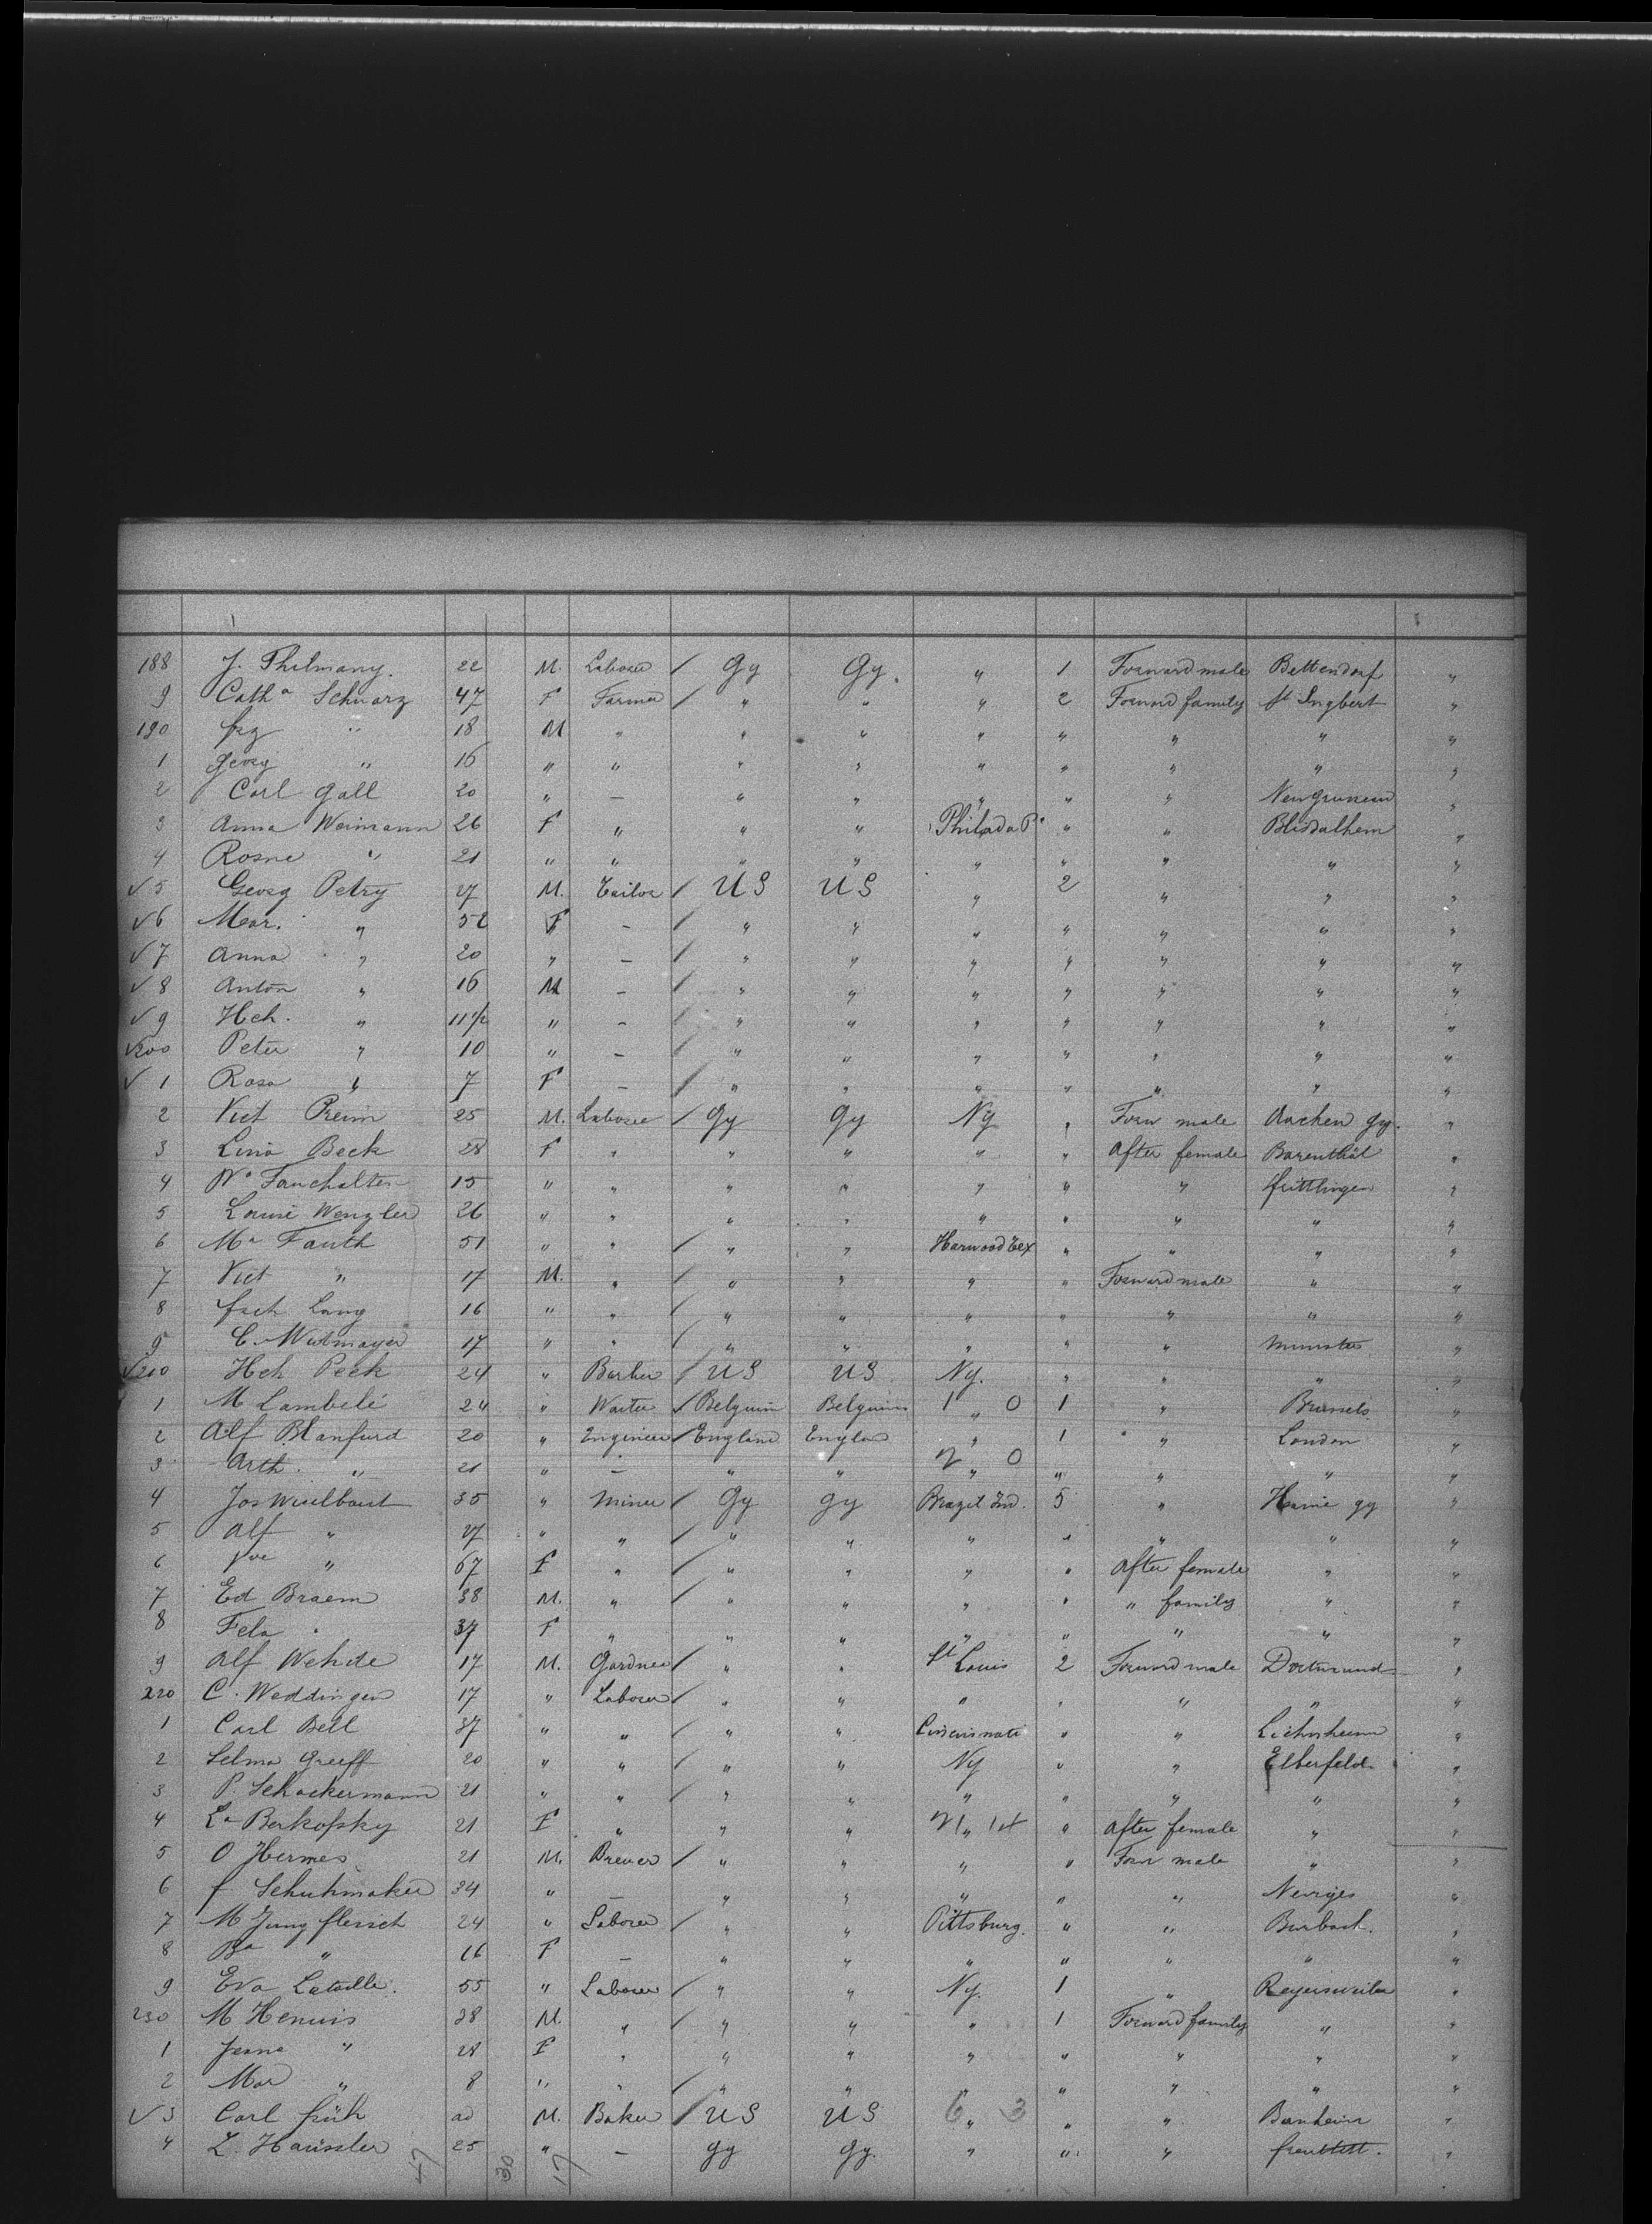 188 J. Thilmany. 22 M. Laborer / Gy Gy. " 1 Forward male Bettendorf "
9 Cath a Schwarz 47 F Farmer / " " " 2 Forward family St Ingbert "
190 " 18 M " " " " " " " "
1 Georg " 16 " " " " " " " " "
2 Carl Gall 20 " — " " " " " "
3 Anna Weimann 26 F " " " Philada Pa " " Bliesdalhem "
4 Rosne " 21 " " " " " " " " "
✓5 Georg Petry 47 M. Tailor / US US " 2 " " "
✓6 Mar. " 52 F – / " " " " " " "
✓7 Anna " 20 " – / " " " " " " "
✓8 Anton " 16 M – / " " " " " " "
✓9 Hch. " 11 1/2 " – / " " " " " " "
✓200 Peter " 10 " – / " " " " " " "
✓1 Rosa " 7 F – / " " " " " " "
2 Vict Preim 25 M. Laborer / Gy Gy Ny " Forw male Aachen Gy. "
3 Lina Beck 28 F " " " " " After female Barenthal "
4 15 " " " " " " " "
5 Louise Wengler 26 " " " " " " " " "
6 Ma Fauth 51 " " / " " Harwood Tex " " " "
7 Vict " 17 M. " / " " " " Forward male " "
8 Lang 16 " " / " " " " " " "
9 C. Widmayer 17 " " / " " " " " Munster "
✓210 Hch Peck 24 " Barber / US US Ny. " " " "
1 M Lambelé 24 " Waiter / Belgium Belgium 1 " 0 1 " Brussels "
2 Alf Blanfurd 20 " Engineer / England England " 1 " London "
3 Arth. " 21 " — " " 2 " 0 " " " "
4 Jos 35 " Miner / Gy Gy Brazil Ind. 5 " Gy "
5 Alf " 47 " " / " " " " " " "
6 Vve " 67 F " / " " " " After female " "
7 Ed Braem 38 M. " / " " " " " family " "
8 Fela " 37 F " " " " " " " "
9 Alf Wehde 17 M. Gardner / " " St Louis 2 Forward male Dortmund "
220 C. Weddingen 17 " Laborer / " " " " " " "
1 Carl Bell 37 " " / " " Cincinnati " " "
2 Selma Greeff 20 " " / " " Ny " " Elberfeld "
3 P. Schackermann 21 " " / " " " " " " "
4 La Berkofsky 21 F " " " " After female " "
5 O Hermes 21 M. Brewer / " " " " Forw male " "
6 f. Schuhmaker 34 " — " " " " " Neviges "
7 M Jungfleisch 24 " Laborer / " " Pittsburg. " " Burbach. "
8 Ba " 16 F – " " " " " " "
9 Eva Lataille. 55 " Laborer / " " Ny. 1 " "
230 M Henuis 38 M. " / " " " 1 Forward family " "
1 Jeane " 28 F " " " " " " " "
2 Mar " 8 " " / " " " " " " "
✓3 Carl früh ad M. Baker / US US 6 " 3 " " "
4 L. Haüssler 25 " — Gy Gy. " " " "
47 30 17